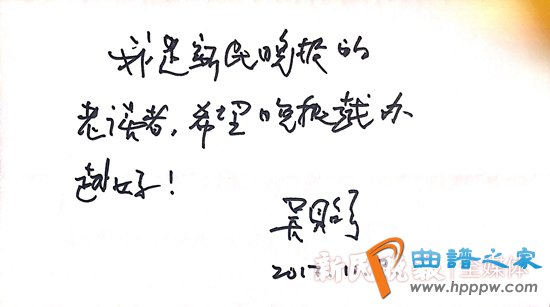 我是新民晚报的
老读者，希望晚报越办
越好！
吴贻弓
2017.11.
新民晚报 全媒体
曲谱之家
www.hpppw.com